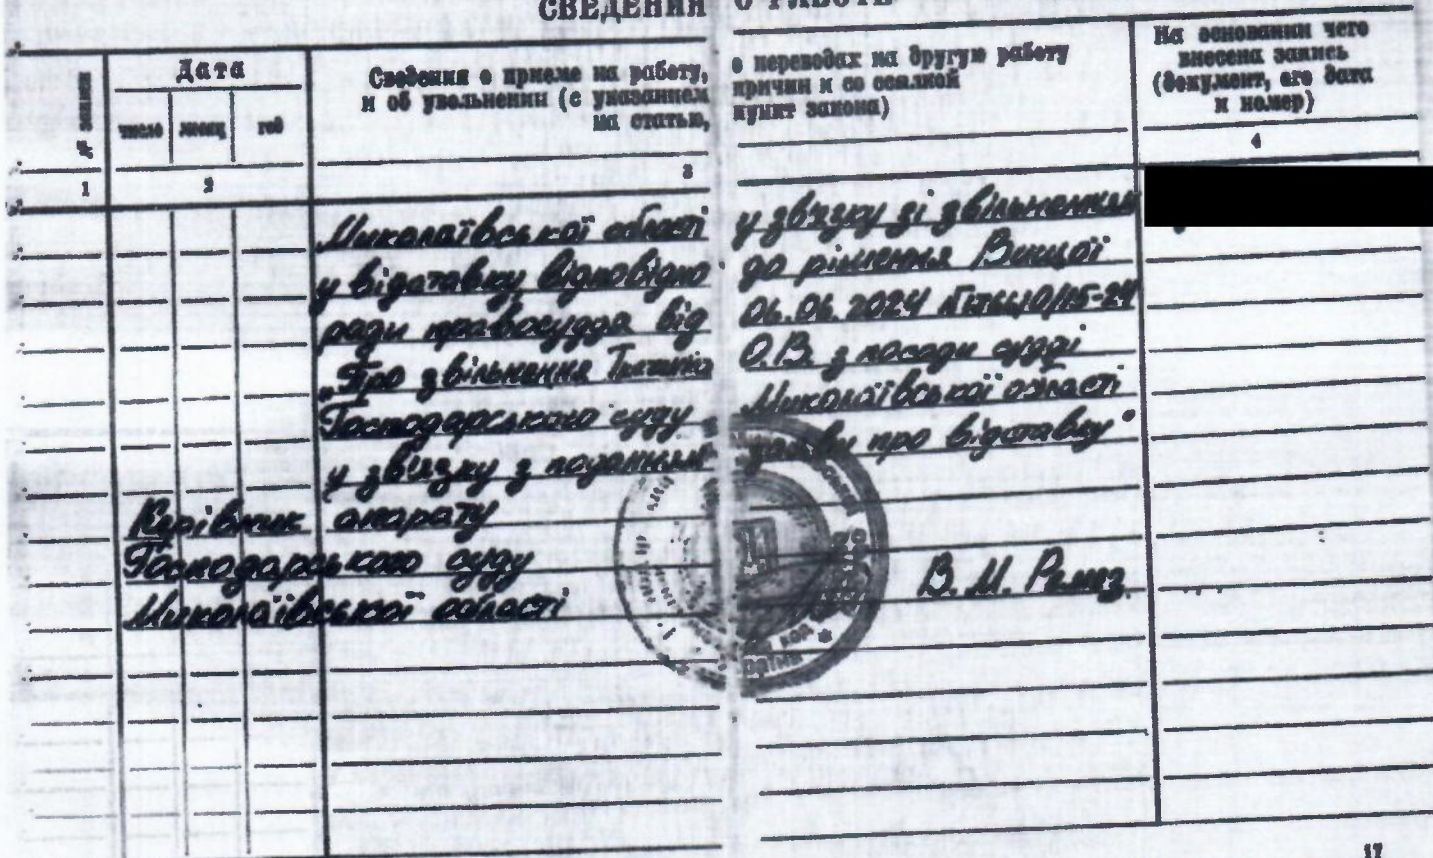 СВЕДЕНИЯ О РАБОТЕ
№ записи
Дата
число месяц год
Сведения о приеме на работу, о переводах на другую работу
и об увольнении (с указанием причин и со ссылкой
на статью, пункт закона)
На основании чего
внесена запись
(документ, его дата
и номер)
1 2 3 4
Миколаївської області у зв'язку зі звільненням
у відставку відповідно до рішення Вищої
ради правосуддя від 06.06.2024
„Про звільнення О.В. з посади судді
Господарського суду Миколаївської області
у зв'язку з поданням заяви про відставку"
Керівник апарату
Господарського суду
Миколаївської області В. М. Ремез
17